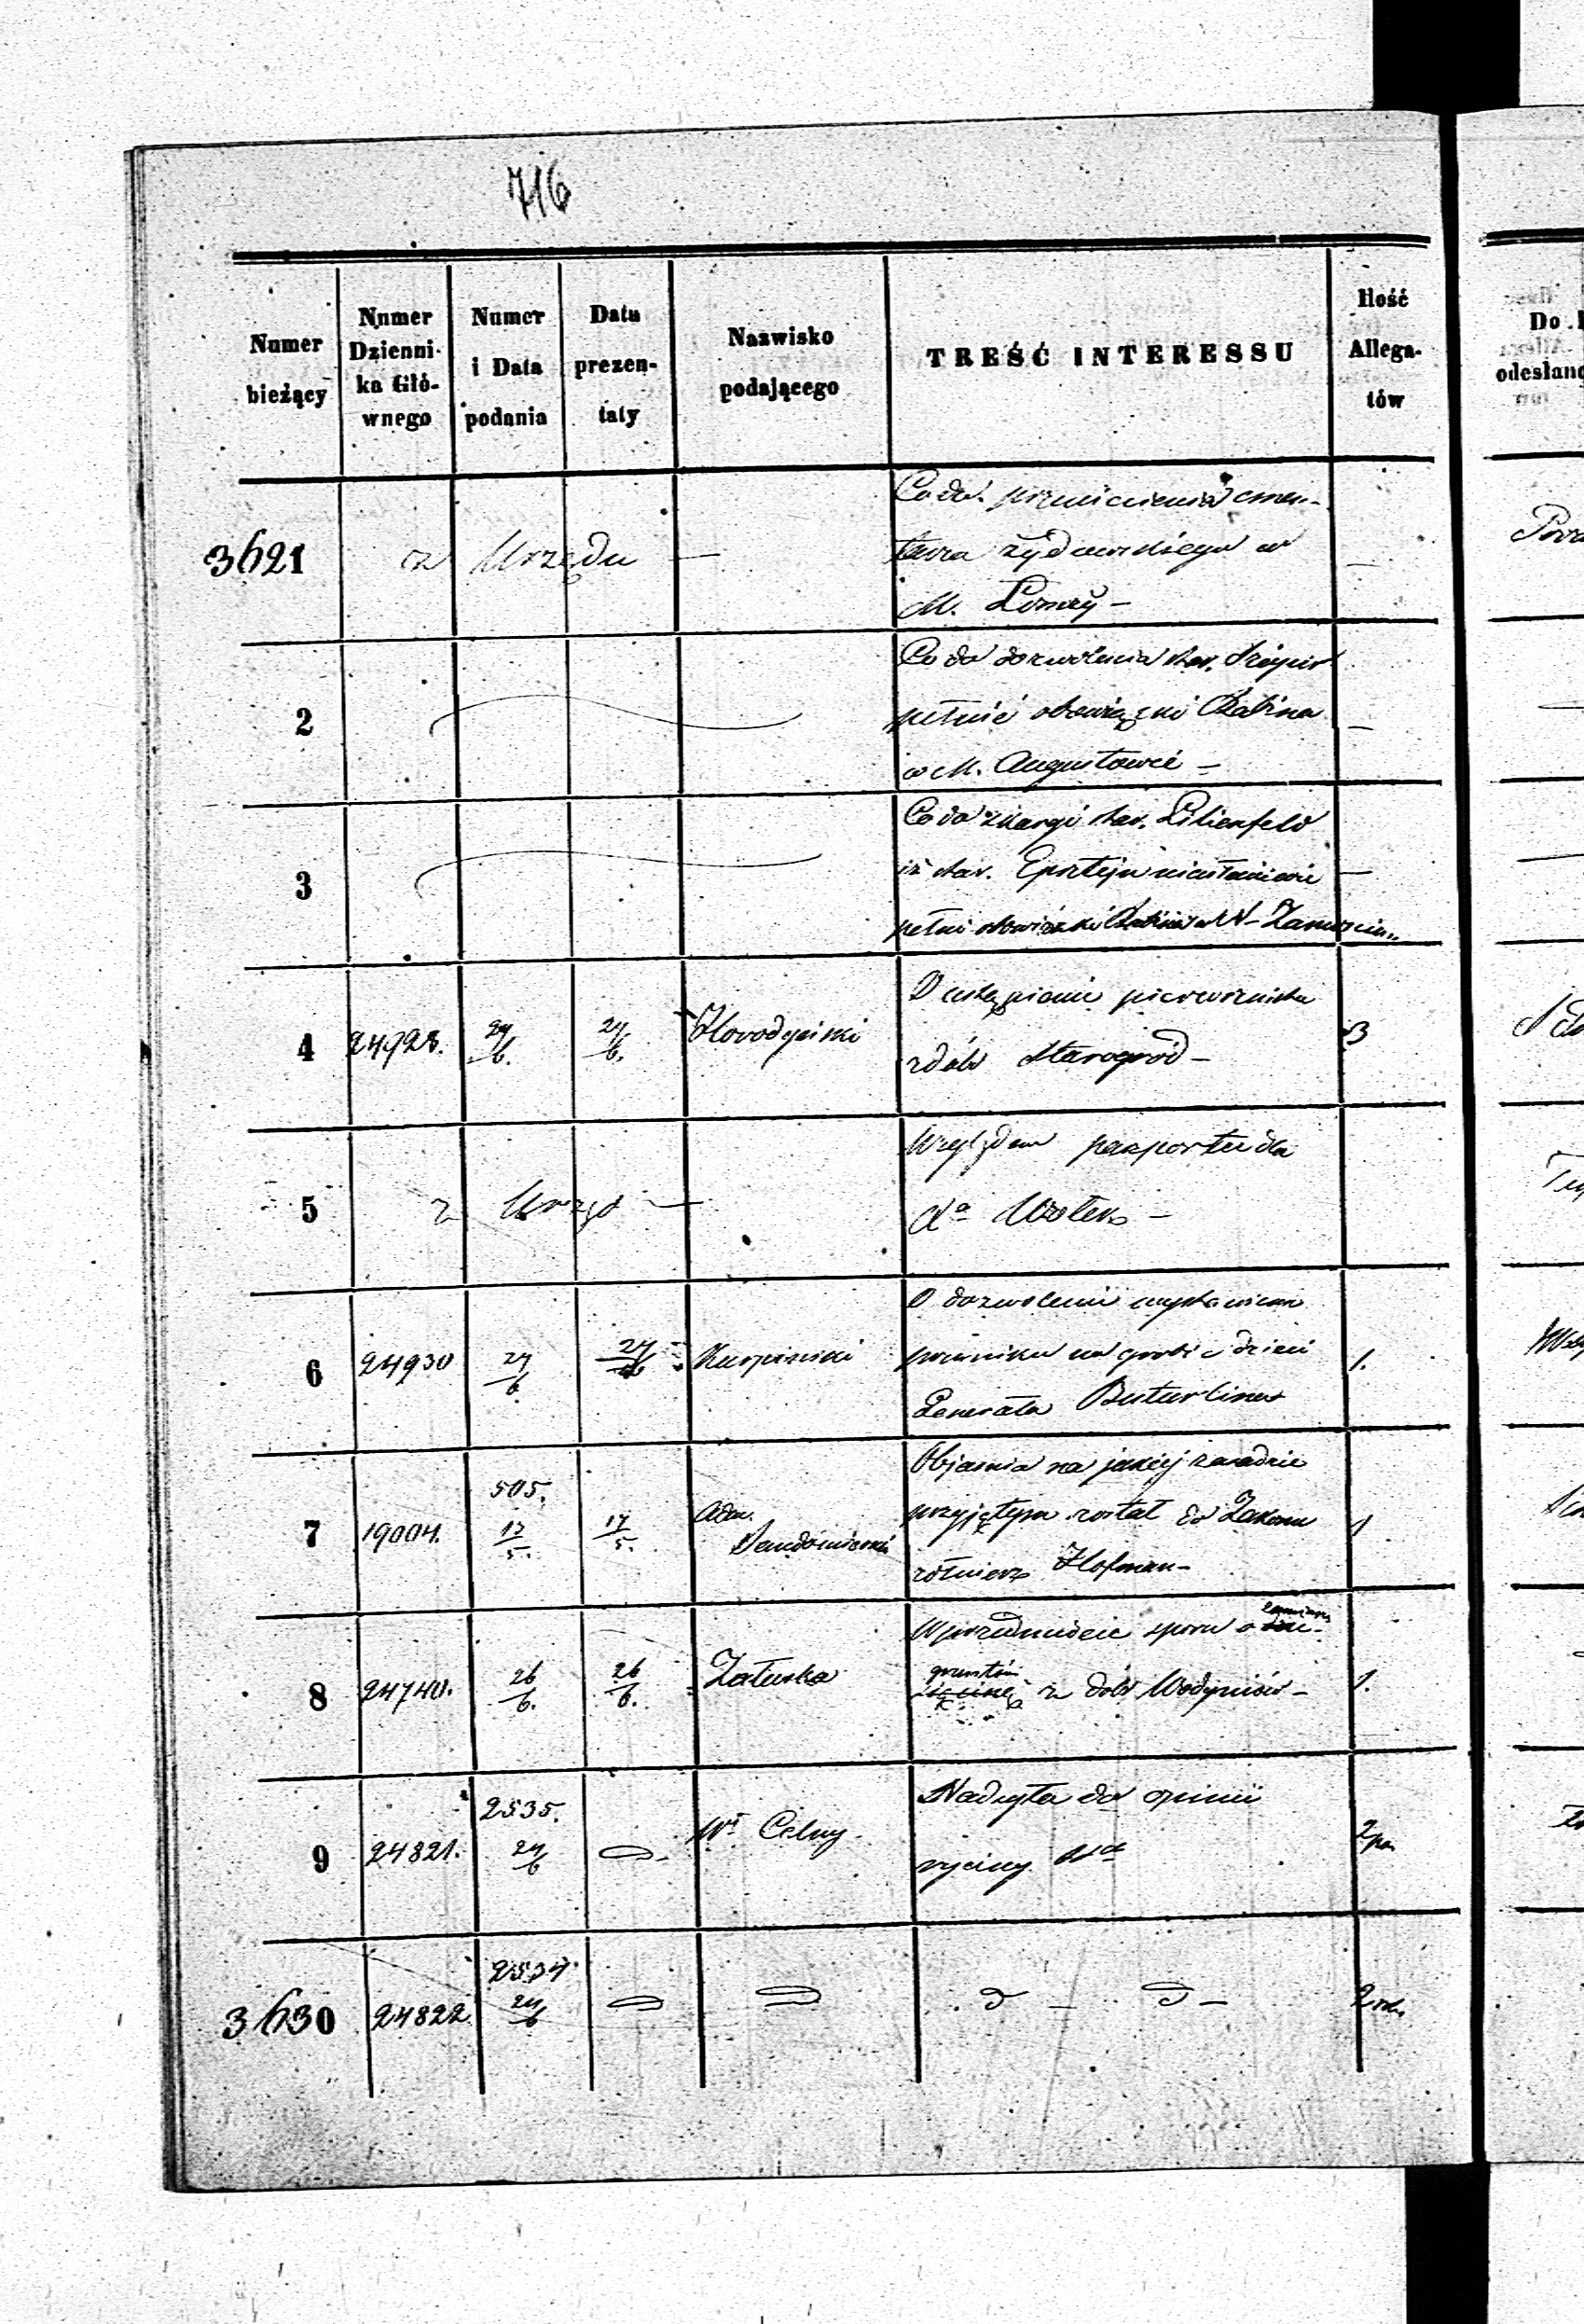 716
Numer bieżący
Numer Dzienni- ka Głó- wnego
Numer i Data podania
Data prezen- taty
Nazwisko podającego
TREŚĆ INTERESSU
Ilość Allega- tów
Do
odesłano
3621 z Urzędu —
Co do przeniesienia cmen-
tarza żydowskiego w
M. Łomży —
2
Co do dozwolenia star.
pełnić obowiązki Rabina
w M. Augustowie —
3
Co do skargi star. Lilienfeld
iż star. Epsztejn
pełni obowiązki Rabina w M. Zamościu
4 24928. 27/6. 27/6. Horodyński
O ustąpienie pierwszeństwa
z dóbr Starogród — 3
5 z Urzęd —
Względem paszportu dla
6 24930 27/6 27/6 Kurpiński
O dozwolenie wystawienia
pomnika na grobie dzieci
Generała Buturlina 1.
7 19004. 505. 17/5. 17/5. Adm. Sandomierski
Objaśnia na jakiej zasadzie
przyjętym został do Zakonu
żołnierz Hofman — 1
8 24740. 26/6. 26/6. Załuska
W przedmiocie sporu o zamianę
gruntów z dóbr Wodyniów — 1.
9 24821. 2535. 24/6 Wł Celny
Nadsyła do opinii
ryciny 2
3630 24822 2534. 24/6 2